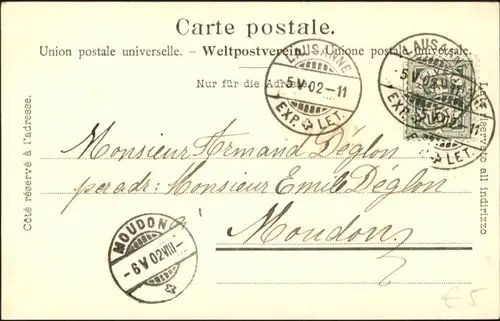 Carte postale.
Union postale universelle. – Weltpostverein. – Unione postale universale.
Nur für die Adresse.
LAUSANNE
5 V 02 – 11
EXP. LET.
LAUSANNE
5 V 02 11
EXP. LET.
HELVETIA
Côté réservé à l'adresse.
Lato riservato all indirizzo
Monsieur Armand Déglon
per adr: Monsieur Emile Déglon
Moudon
MOUDON
– 6 V 02 VIII –
€5